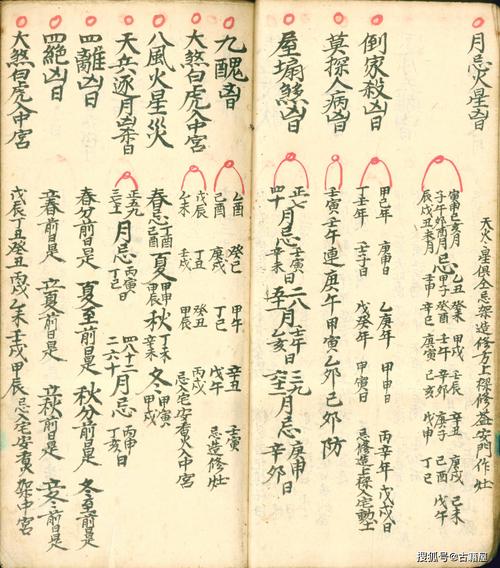 月忌火星凶日
天火星俱全忌架造修方上樑修葢安門作灶
寅申巳亥月
子午卯酉月
辰戌丑未月
忌
乙丑 癸未 甲戌 壬辰 辛丑 庚戌 己未
甲子 癸酉 庚子 己酉 戊午
壬申 辛巳 庚寅 己亥 戊申 丁巳
倒家殺凶日
甲己年 庚申日 乙庚年 甲申日 丙辛年 戊戌日
丁壬年 壬子日 戊癸年 甲寅日 忌修造上樑入宅動土
莫探人病凶日
壬寅壬午連庚午 甲寅乙卯己卯防
屋塌煞凶日
正七四十月忌壬寅日辛未 二八月壬午日乙亥日 三九月忌庚申日辛卯
九醜凶日
乙酉 癸巳 甲午 辛丑 壬寅
己酉 庚戌 丁巳 戊午 忌造修灶
大煞白虎入中宮
戊辰 丁丑 癸丑 丙戌 忌入宅安香火入中宮
乙未 壬戌 甲辰
八風火星災
春忌丁酉己酉 夏甲申甲辰 秋丁未辛未 冬甲寅甲戌
天兵逐月凶杀日
正五九月忌丙寅日丁巳 四八十二二六十月忌丙申日丁亥
四離凶日
春分前日是 夏至前日是 秋分前日是 冬至前日是
四絕凶日
立春前日是 立夏前日是 立秋前日是 立冬前日是
大煞白虎入中宮
戊辰丁丑癸丑丙戌乙未壬戌甲辰 忌入宅安香火架中宮
搜狐号@古籍屋